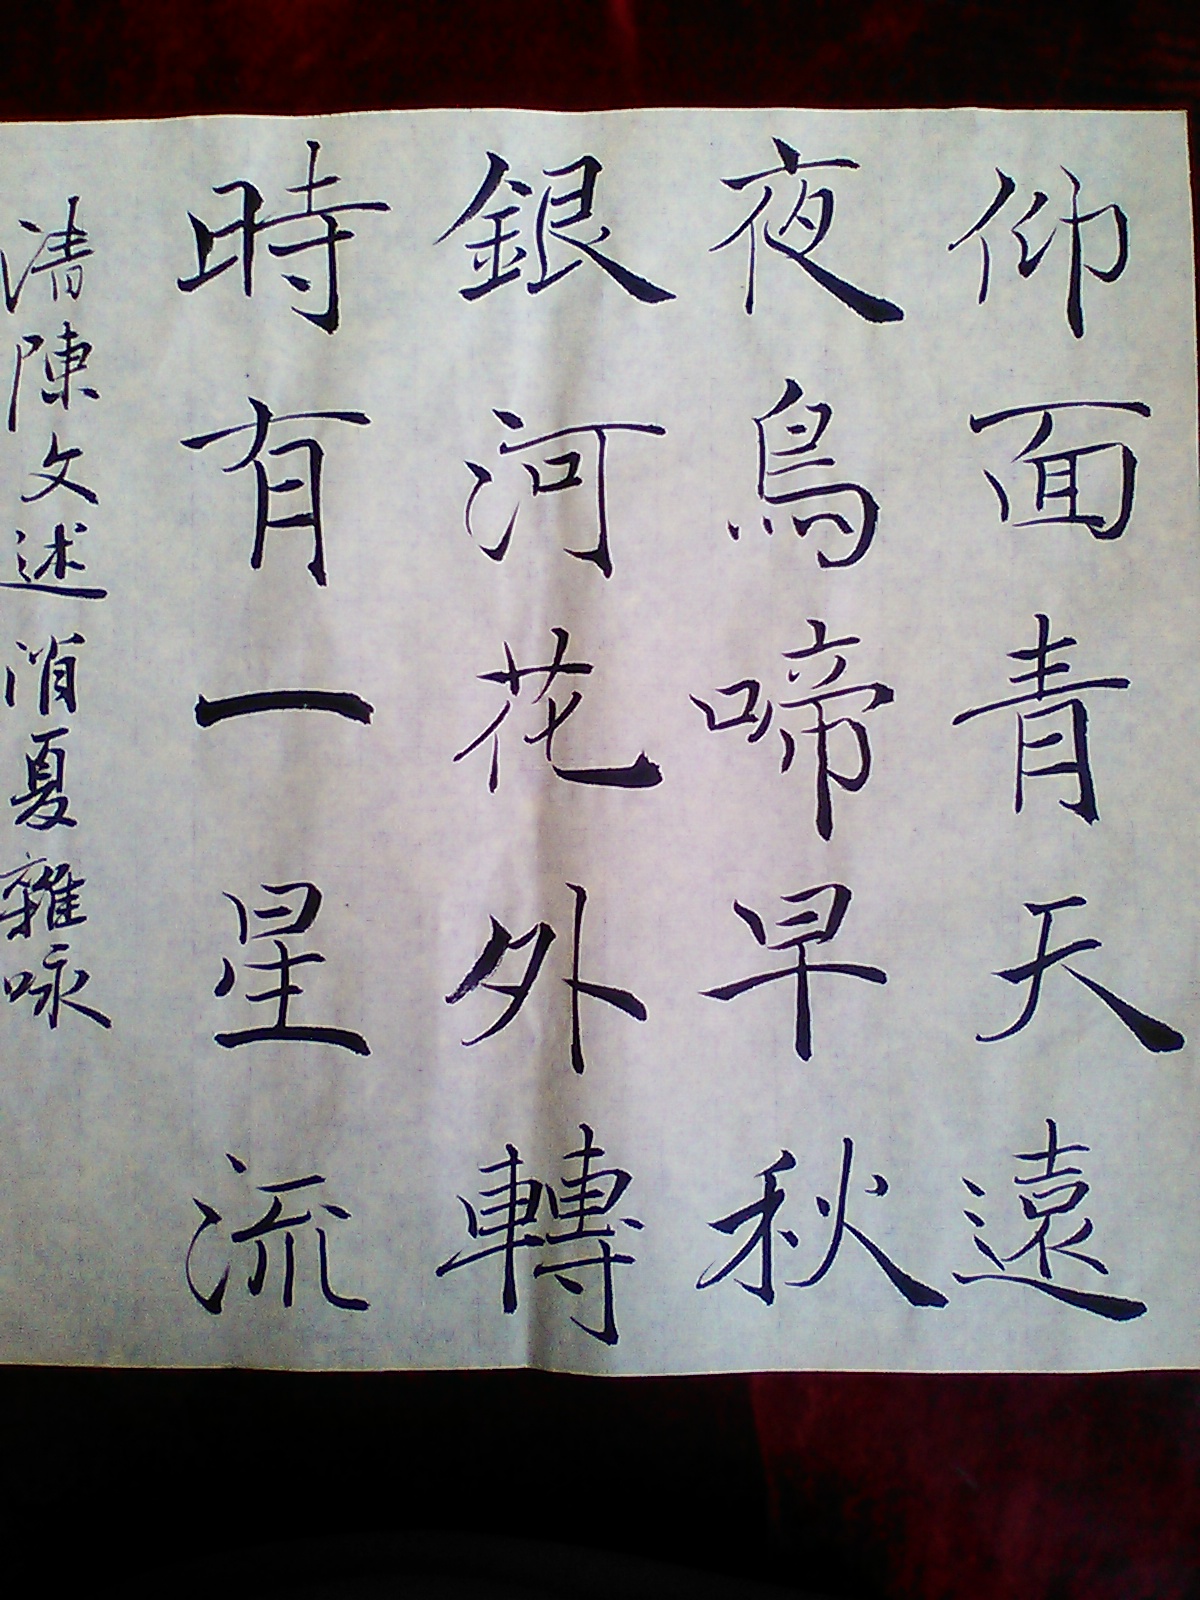 仰面青天遠
夜鳥啼早秋
銀河花外轉
時有一星流
清陳文述消夏雜咏